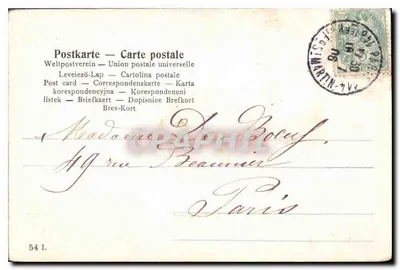 Postkarte – Carte postale
Weltpostverein – Union postale universelle
Levelező-Lap – Cartolina postale
Post card – Correspondenzkarte – Karta
korespondencyjna – Korespondeneni
listek – Briefkaert – Dopisnice Brefkort
Brev-Kort
Madame Du Boeuf
49 rue Beaunier
Paris
54 L